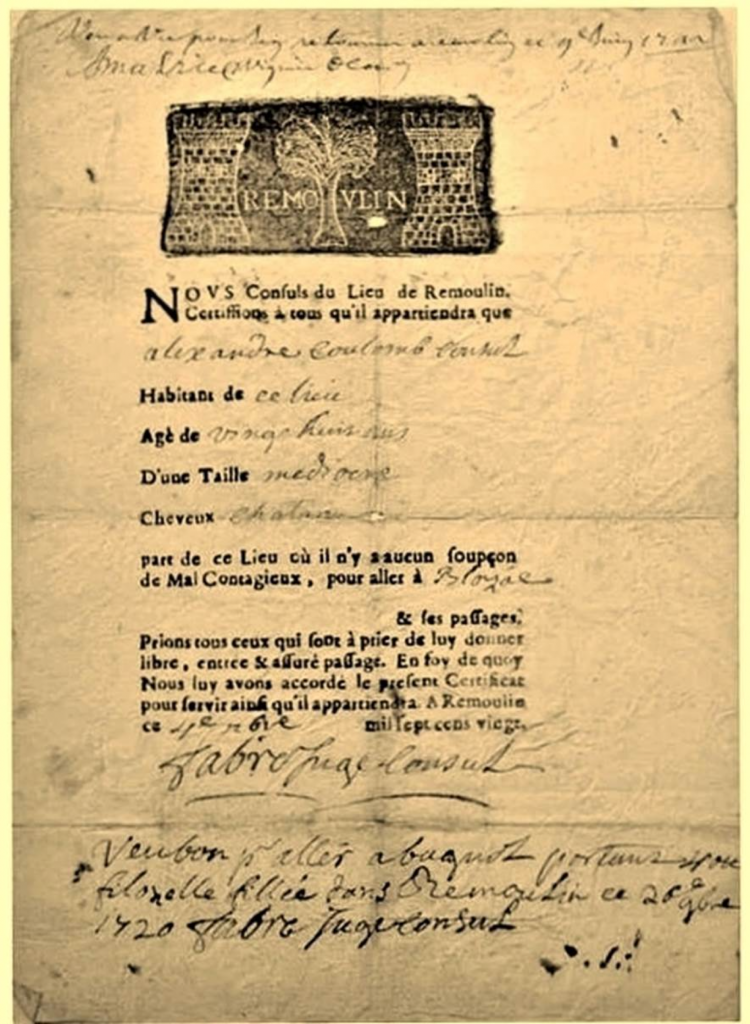 pour
retourner
REMOVLIN
NOVS Consuls du Lieu de Remoulin,
Certiffions à tous qu'il appartiendra que
alexandre coulomb consul
Habitant de ce lieu
Agè de vingt huit ans
D'une Taille mediocre
Cheveux chatain
part de ce Lieu où il n'y a aucun soupçon
de Mal Contagieux, pour aller à Blozac
& ses passages,
Prions tous ceux qui sont à prier de luy donner
libre, entree & assuré passage. En foy de quoy
Nous luy avons accordé le present Certificat
pour servir ainsi qu'il appartiendra. A Remoulin
ce 4e 9bre mil sept cens vingt.
fabre juge consul
Veu bon pr aller a portant
filozelle fillée dans Remoulin ce 26 9bre
1720 fabre juge consul